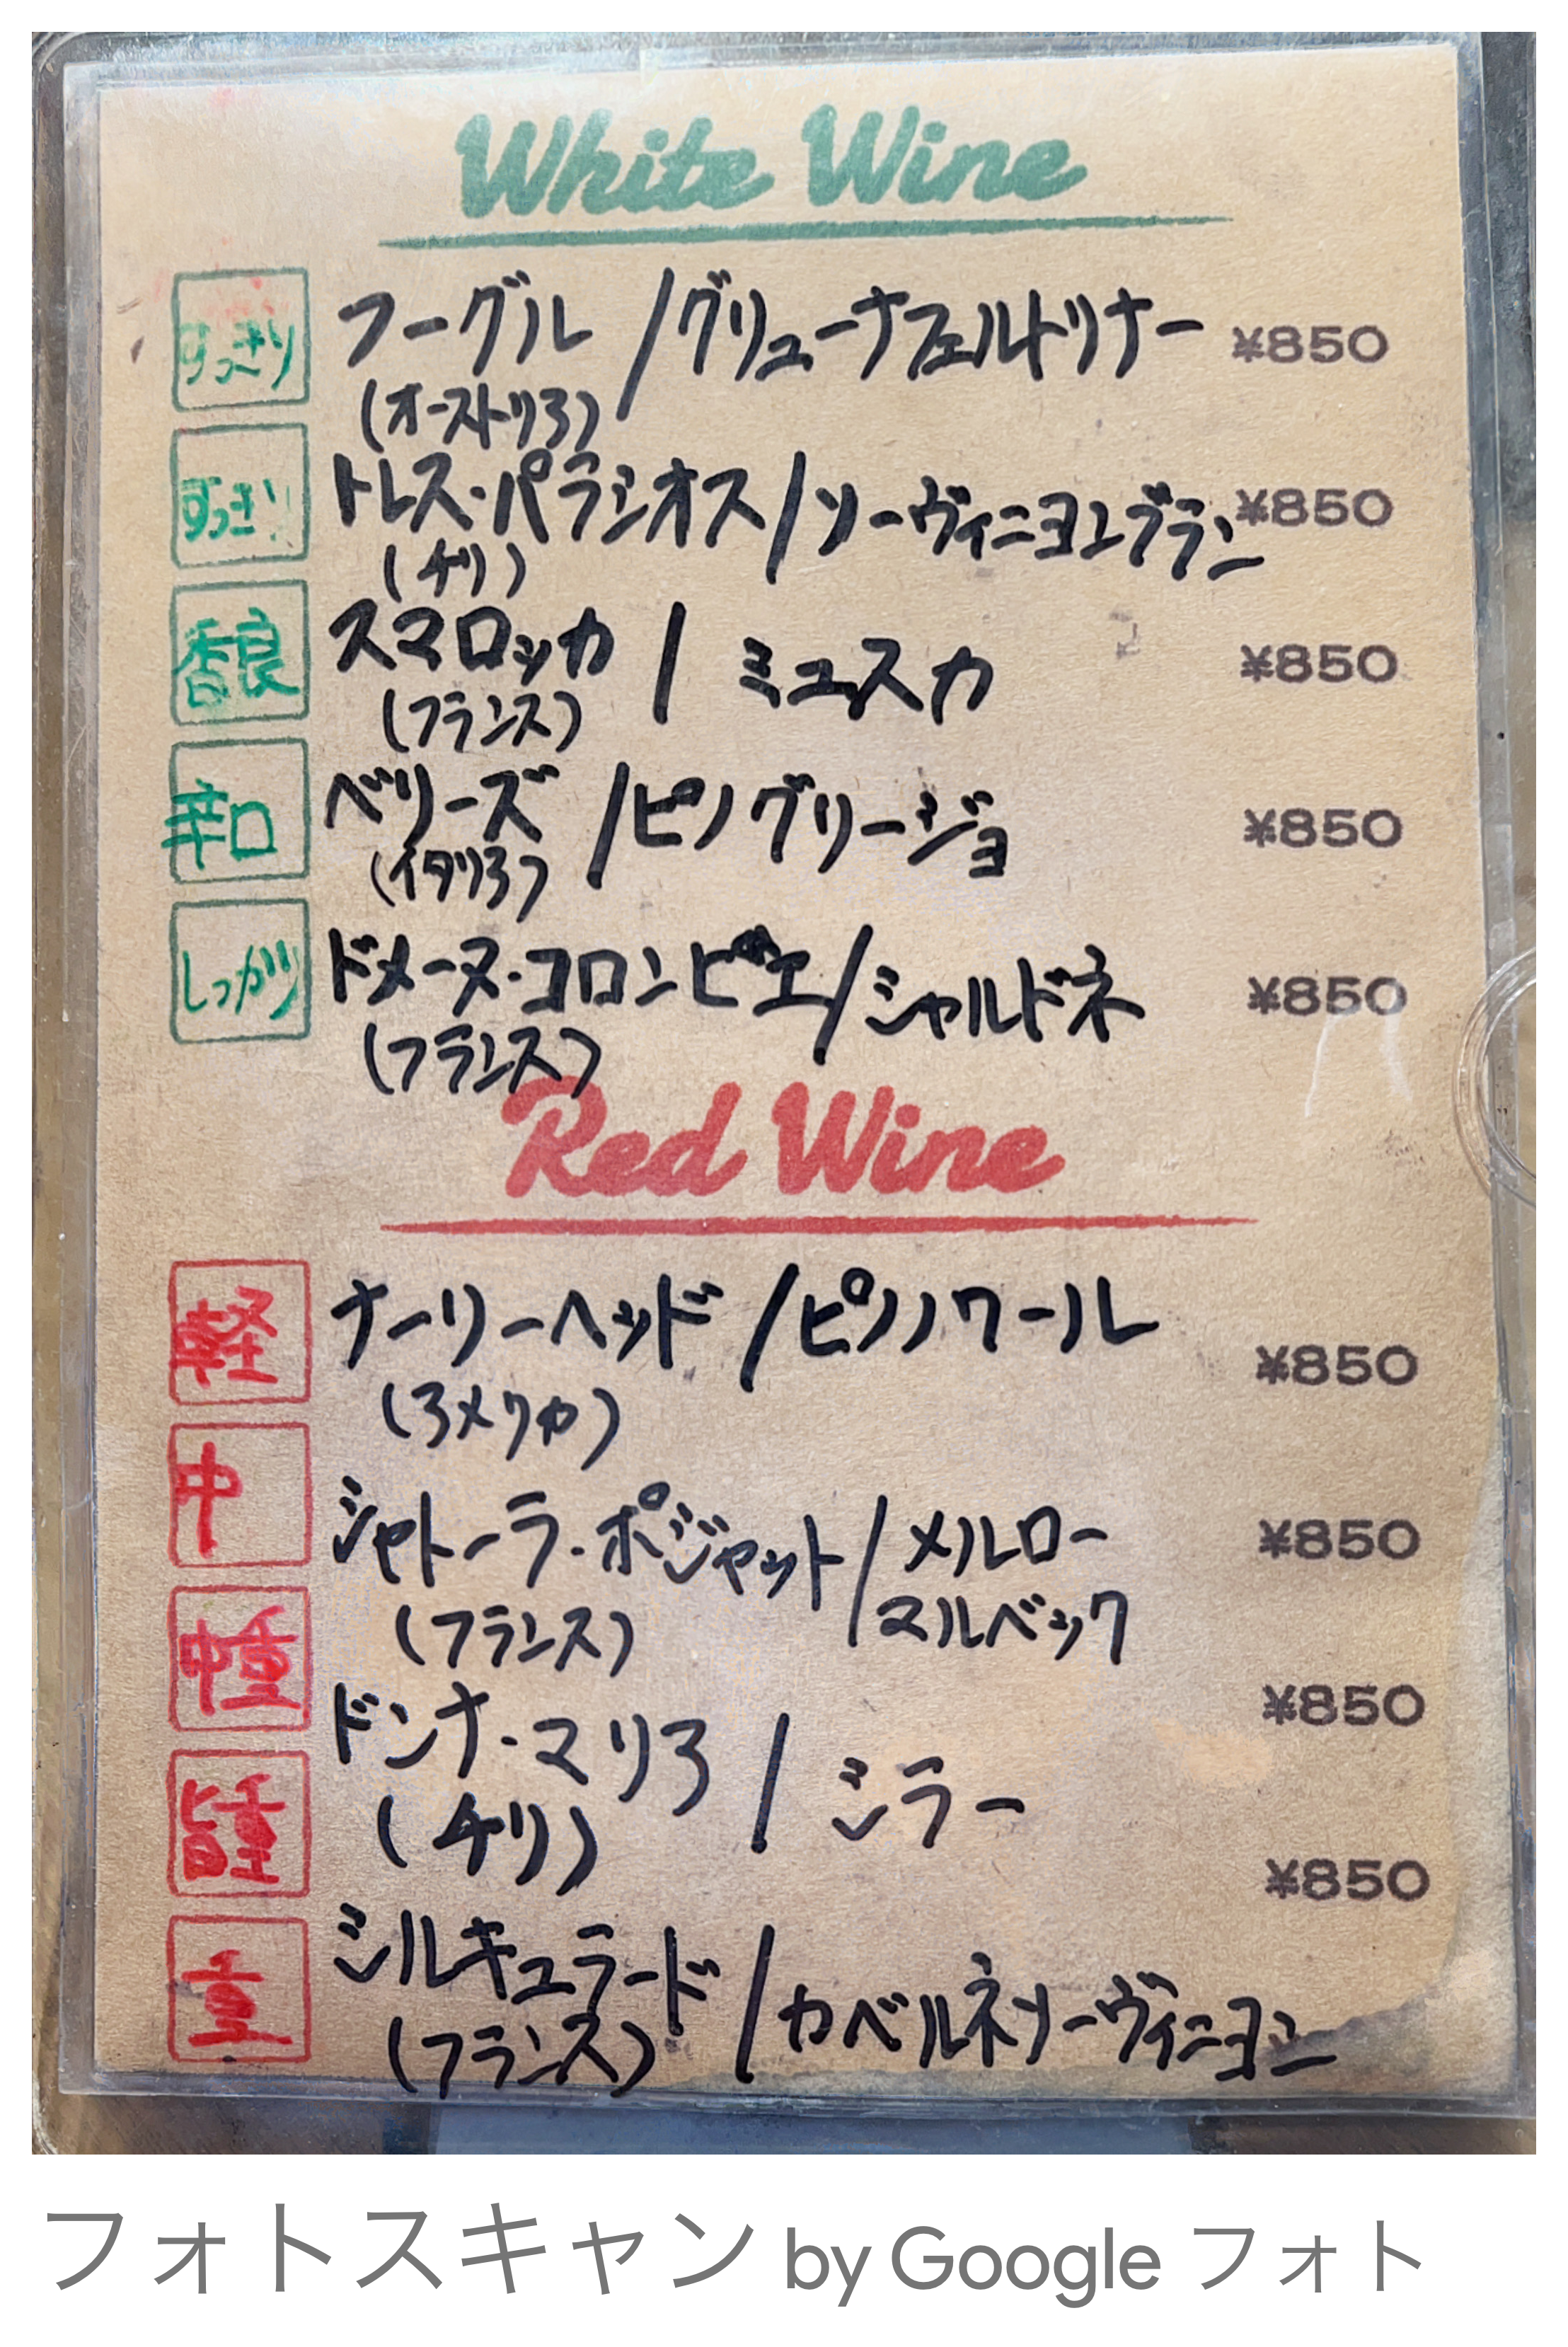 White Wine
すっきり フーグル/グリューナフェルトリナー ¥850
(オーストリア)
すっきり トレス・パラシオス/ソーヴィニヨンブラン ¥850
(チリ)
香良 スマロッカ/ミュスカ ¥850
(フランス)
辛口 ベリーズ/ピノグリージョ ¥850
(イタリア)
しっかり ドメーヌ・コロンビエ/シャルドネ ¥850
(フランス)
Red Wine
軽 ナーリーヘッド/ピノノワール ¥850
(アメリカ)
中 シャトーラ・ポジャット/メルロー ¥850
マルベック
(フランス)
中重 ドンナ・マリア/シラー ¥850
(チリ)
旨重 ¥850
重 シルキュラード/カベルネソーヴィニヨン
(フランス)
フォトスキャン by Google フォト